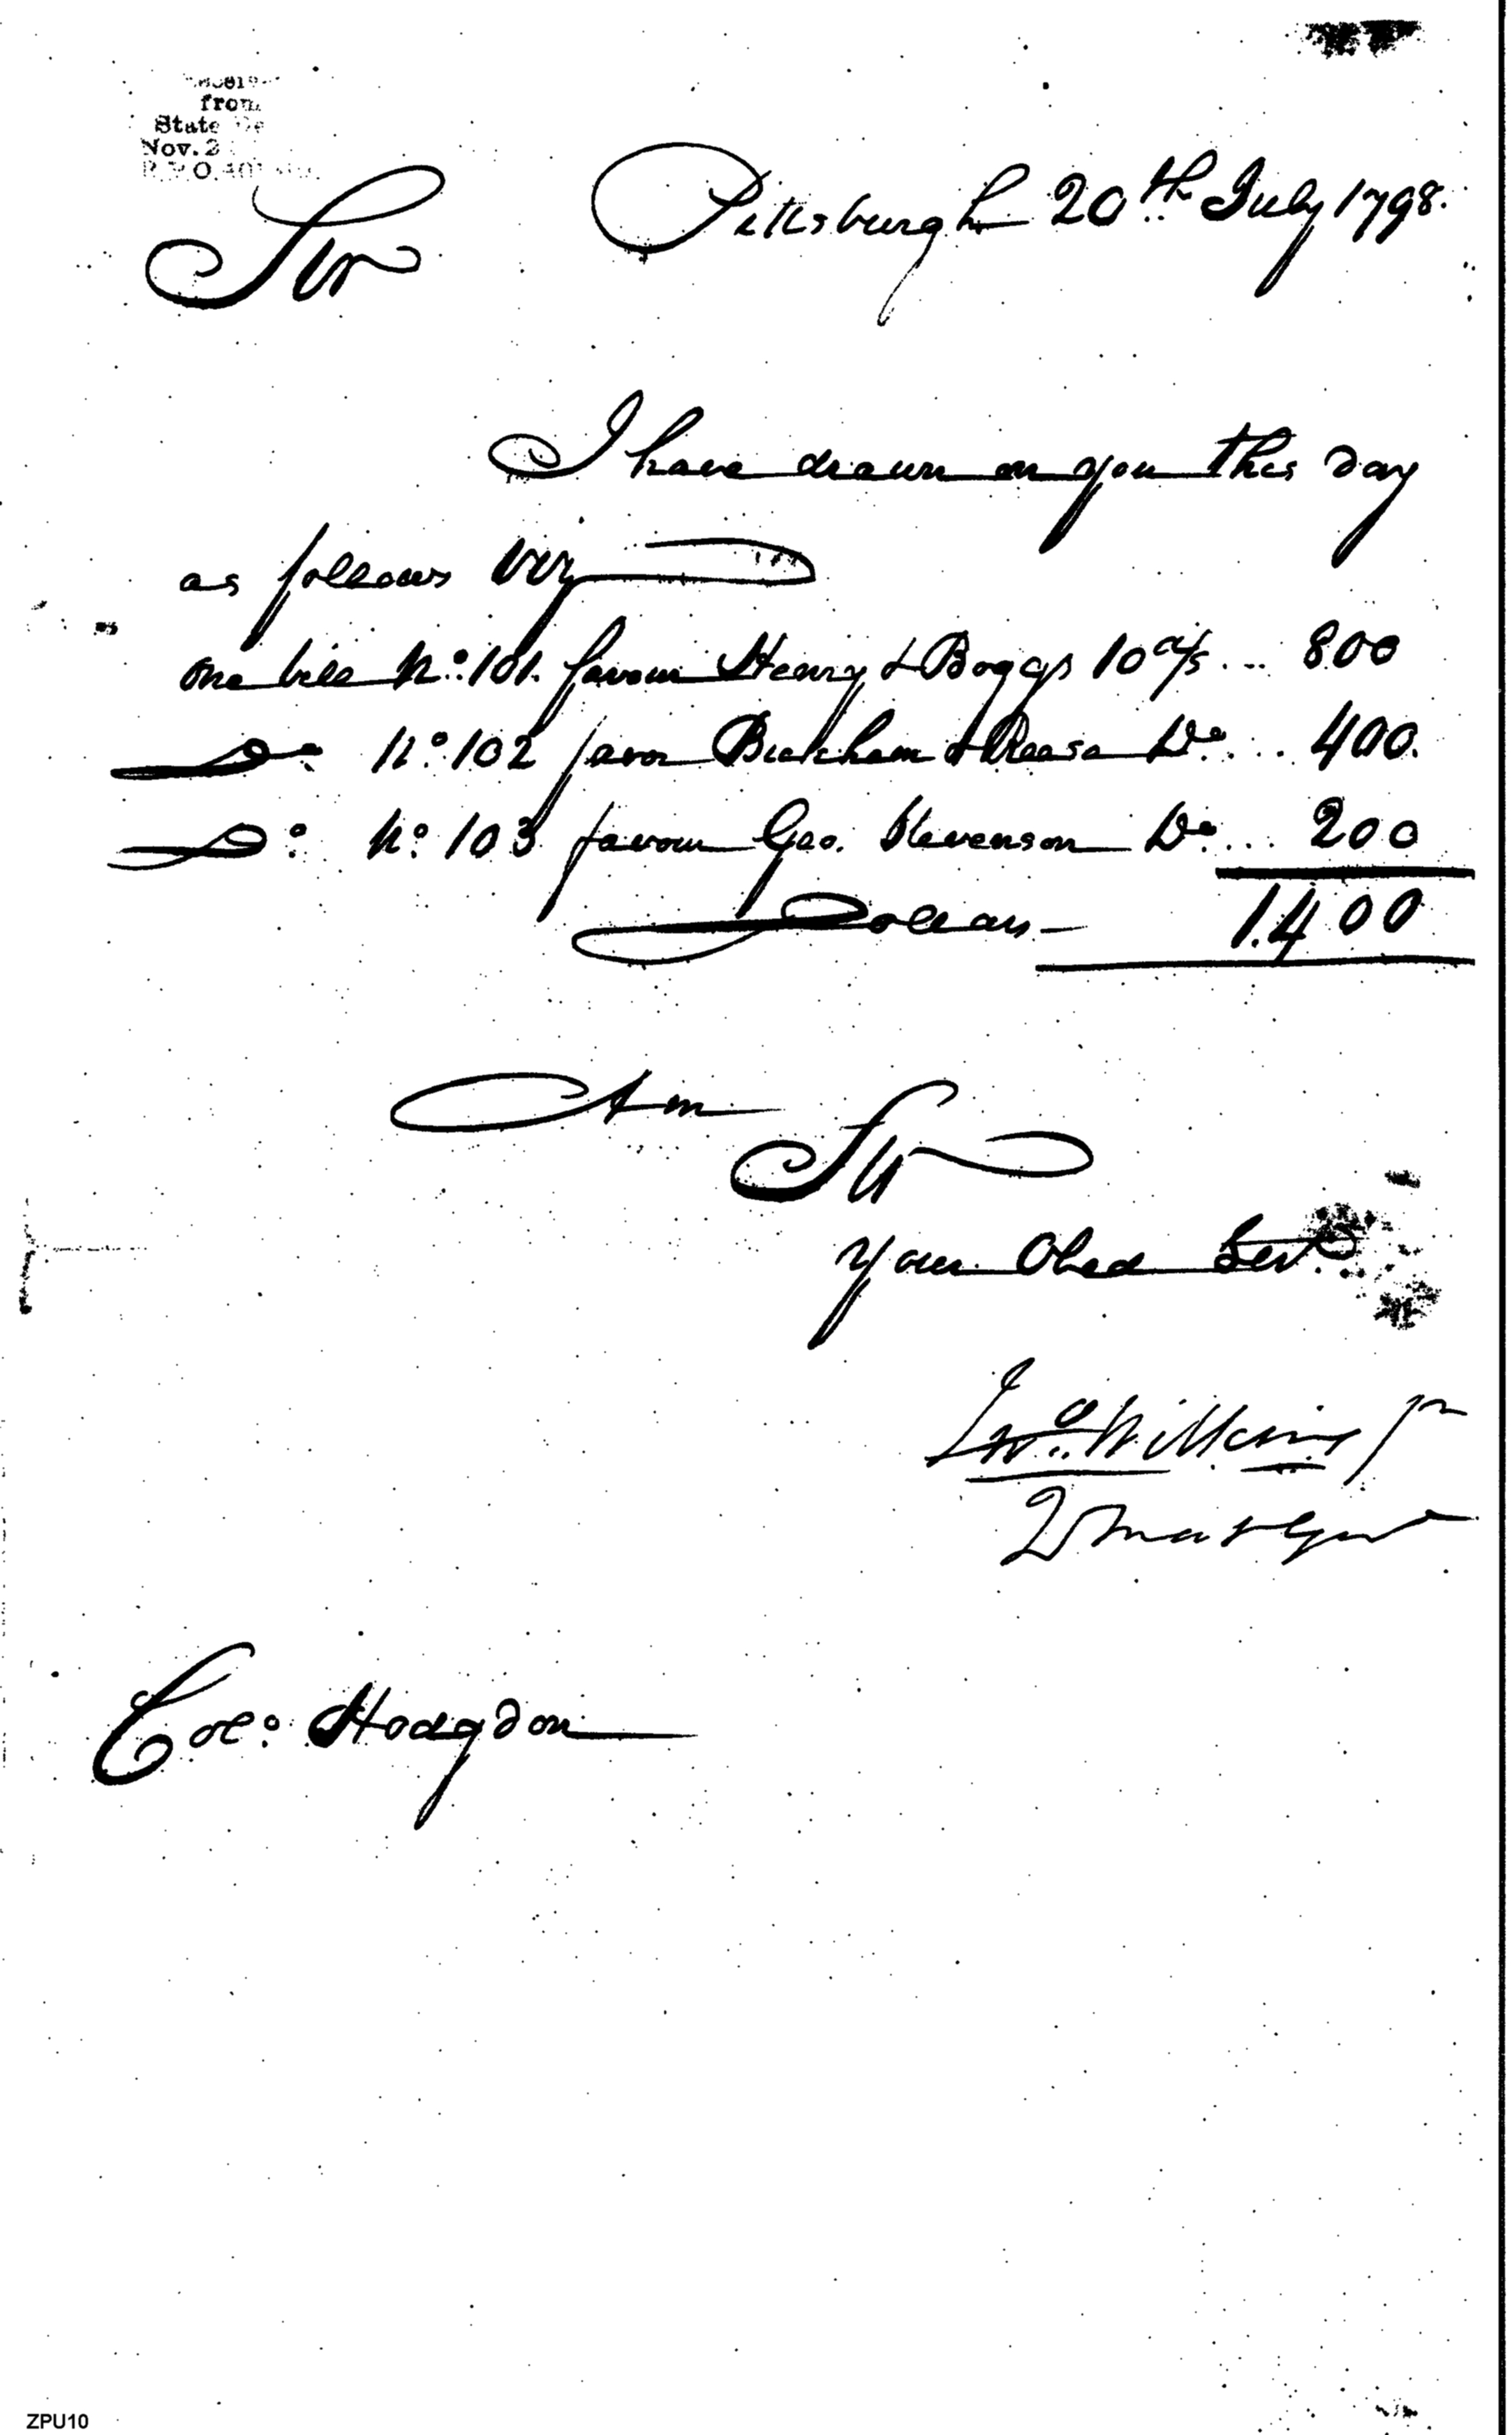 from
State De
Nov. 2
Pittsburgh 20th July 1798.
Sir
I have drawn on you this day
as follows Viz
one bill No. 101. favour Henry & Boggs 10 d/s ... 800
Do. No. 102 favor Bickham & Reese Do. ... 400.
Do. No. 103 favour Geo. Stevenson Do. ... 200
Dollars 1.400
Am
Sir
your Obed Servt.
Jno. Wilkins Jr
QmasrGenl
Colo. Hodgdon
ZPU10